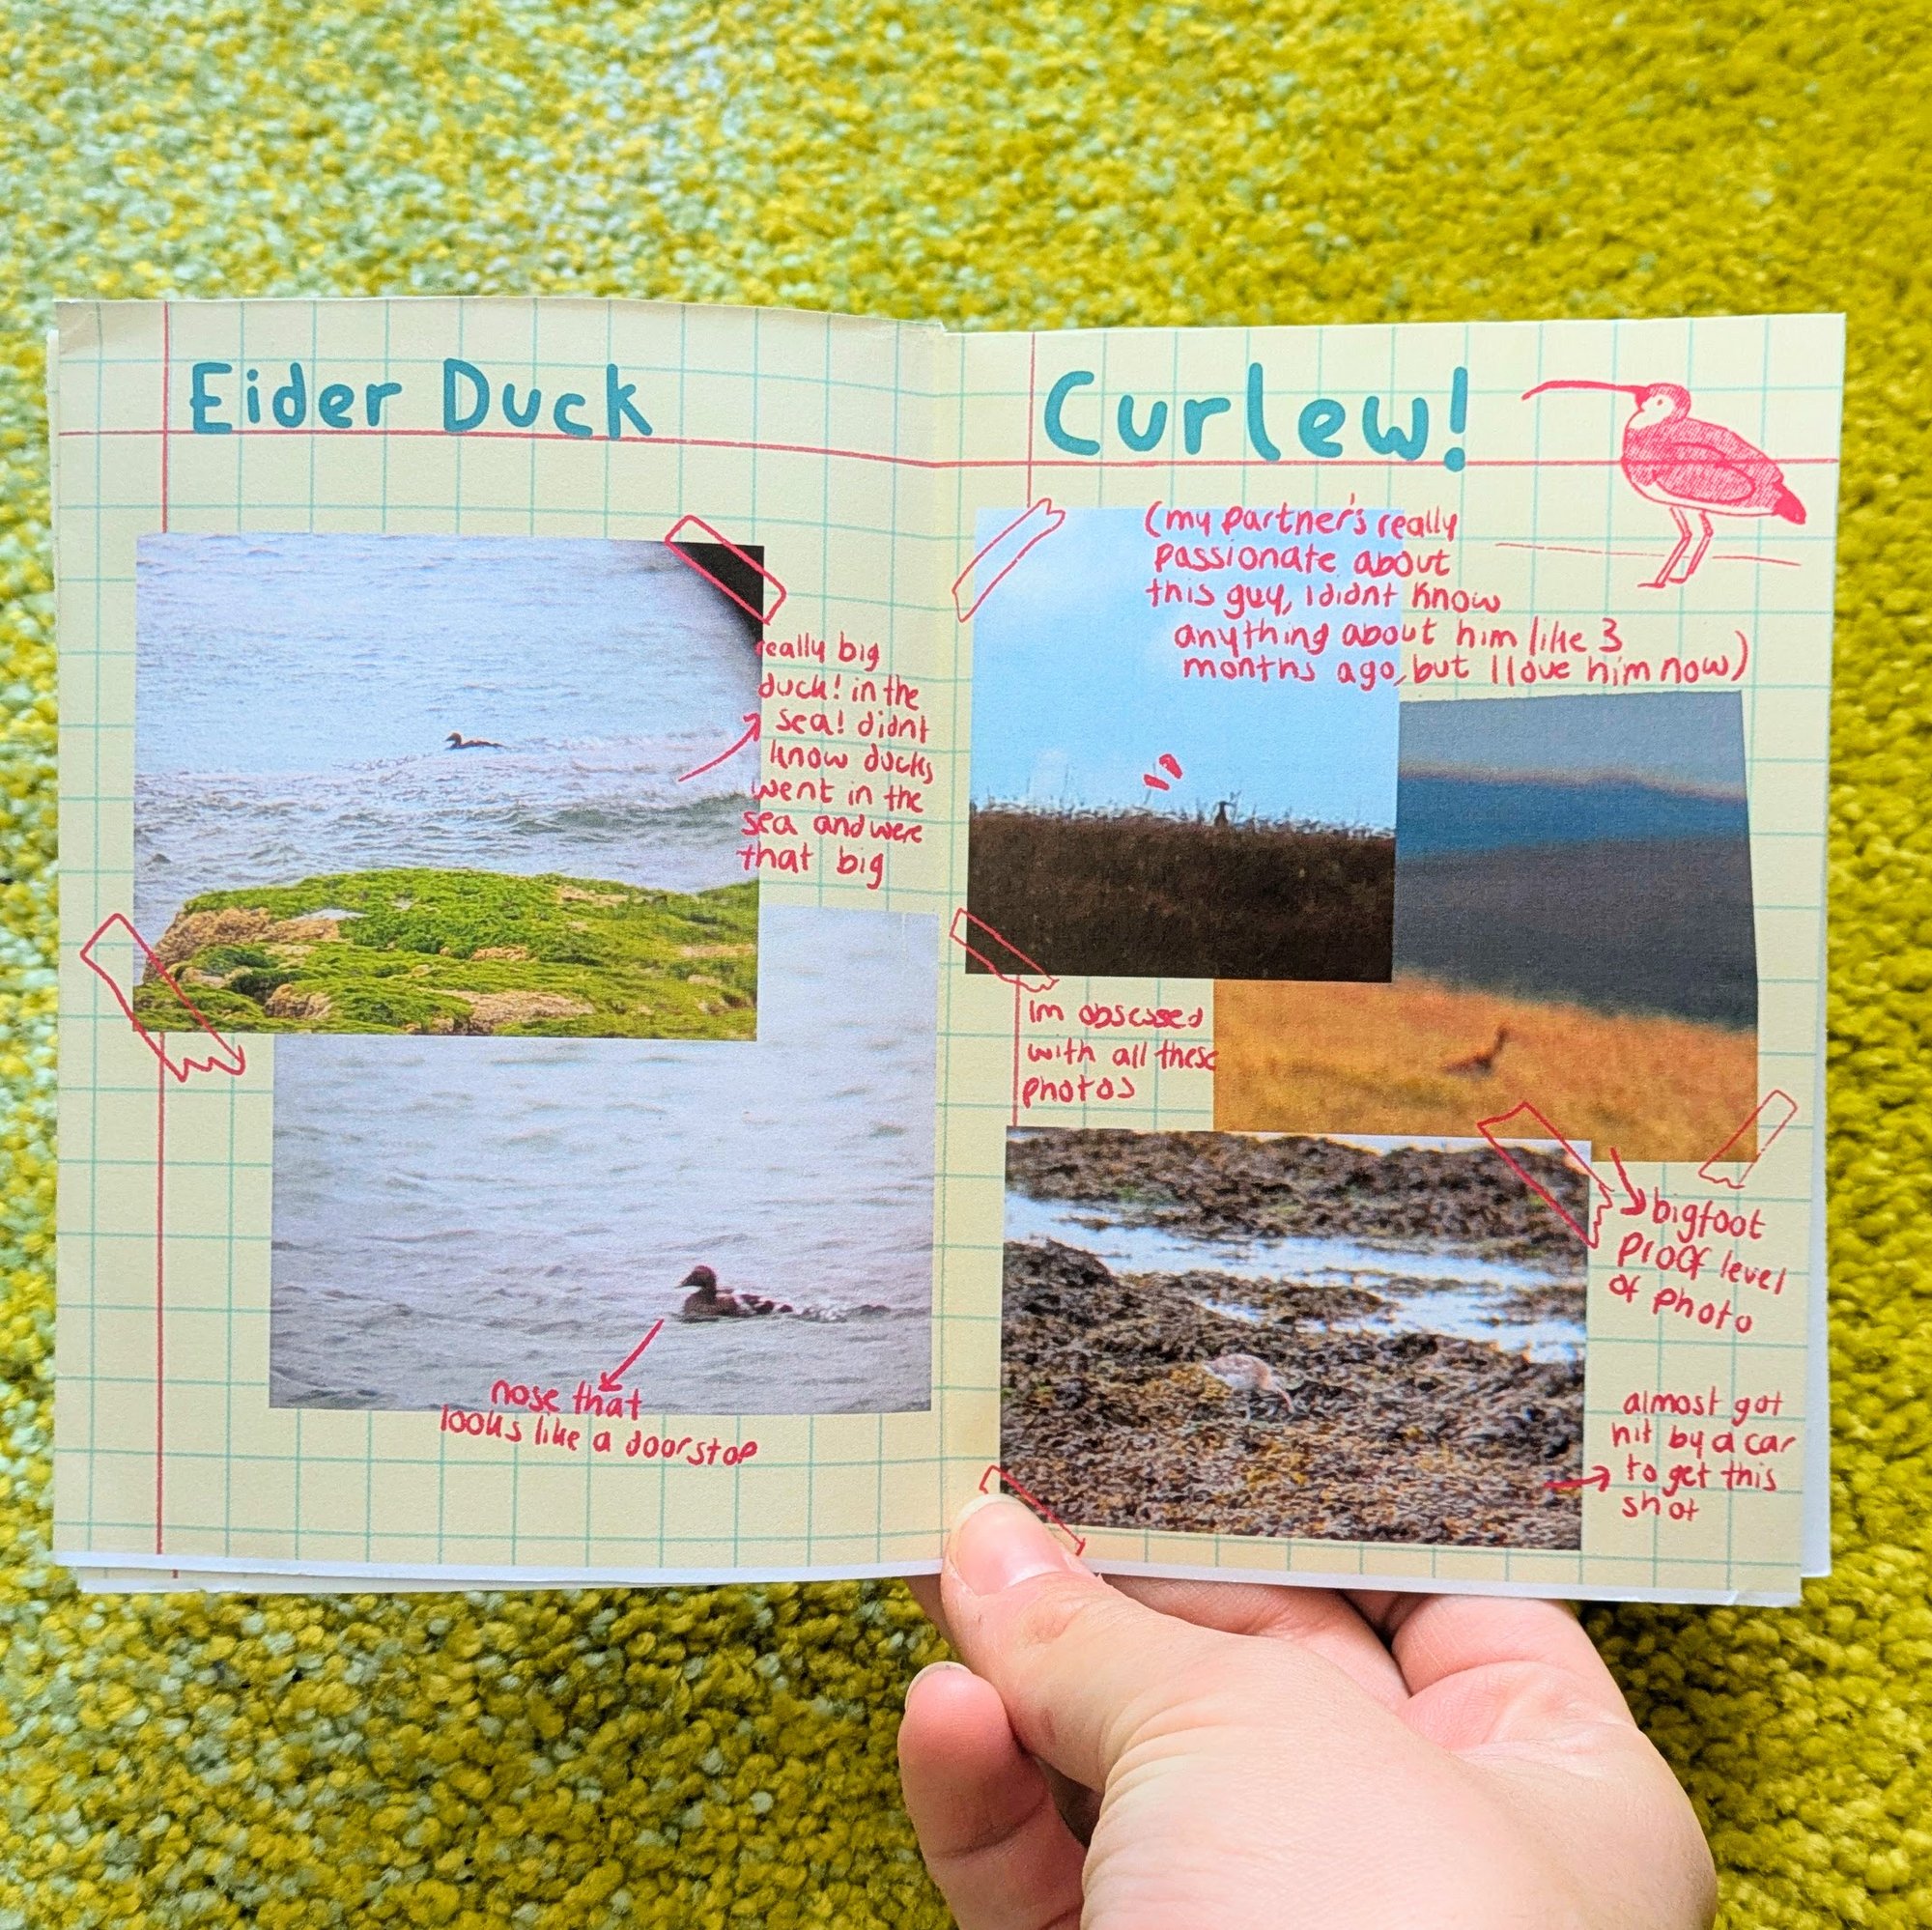 Eider Duck
really big
duck! in the
sea! didnt
know ducks
went in the
sea and were
that big
nose that
looks like a doorstop
Curlew!
(my partner's really
passionate about
this guy, i didnt know
anything about him like 3
months ago, but I love him now)
Im obsessed
with all these
photos
bigfoot
proof level
of photo
almost got
hit by a car
to get this
shot